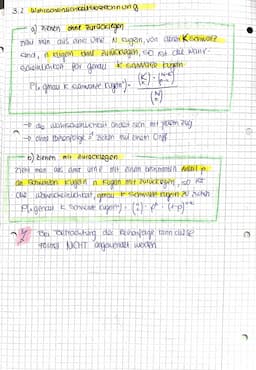 3.2 Wahrscheinlichkeitsberechnung
a) ziehen ohne zurücklegen
Zieht man aus einer Urne N Kugeln, von denen K schwarz
sind, n Kugeln ohne zurücklegen, so ist die Wahr-
scheinlichkeit für genau k schwarze Kugeln
P(„genau k schwarze Kugeln") =
→ die Wahrscheinlichkeit ändert sich mit jedem Zug
→ ohne Reihenfolge ≙ ziehen mit einem Griff
b) ziehen mit zurücklegen
Zieht man aus einer Urne mit einem bestimmten Anteil p
an schwarzen Kugeln n Kugeln mit zurücklegen, so ist
die Wahrscheinlichkeit, genau k schwarze Kugeln zu ziehen
P(„genau k schwarze Kugeln") = (n k) · p^k · (1-p)^n-k
Bei Betrachtung der Reihenfolge kann diese
Formel NICHT angewendet werden